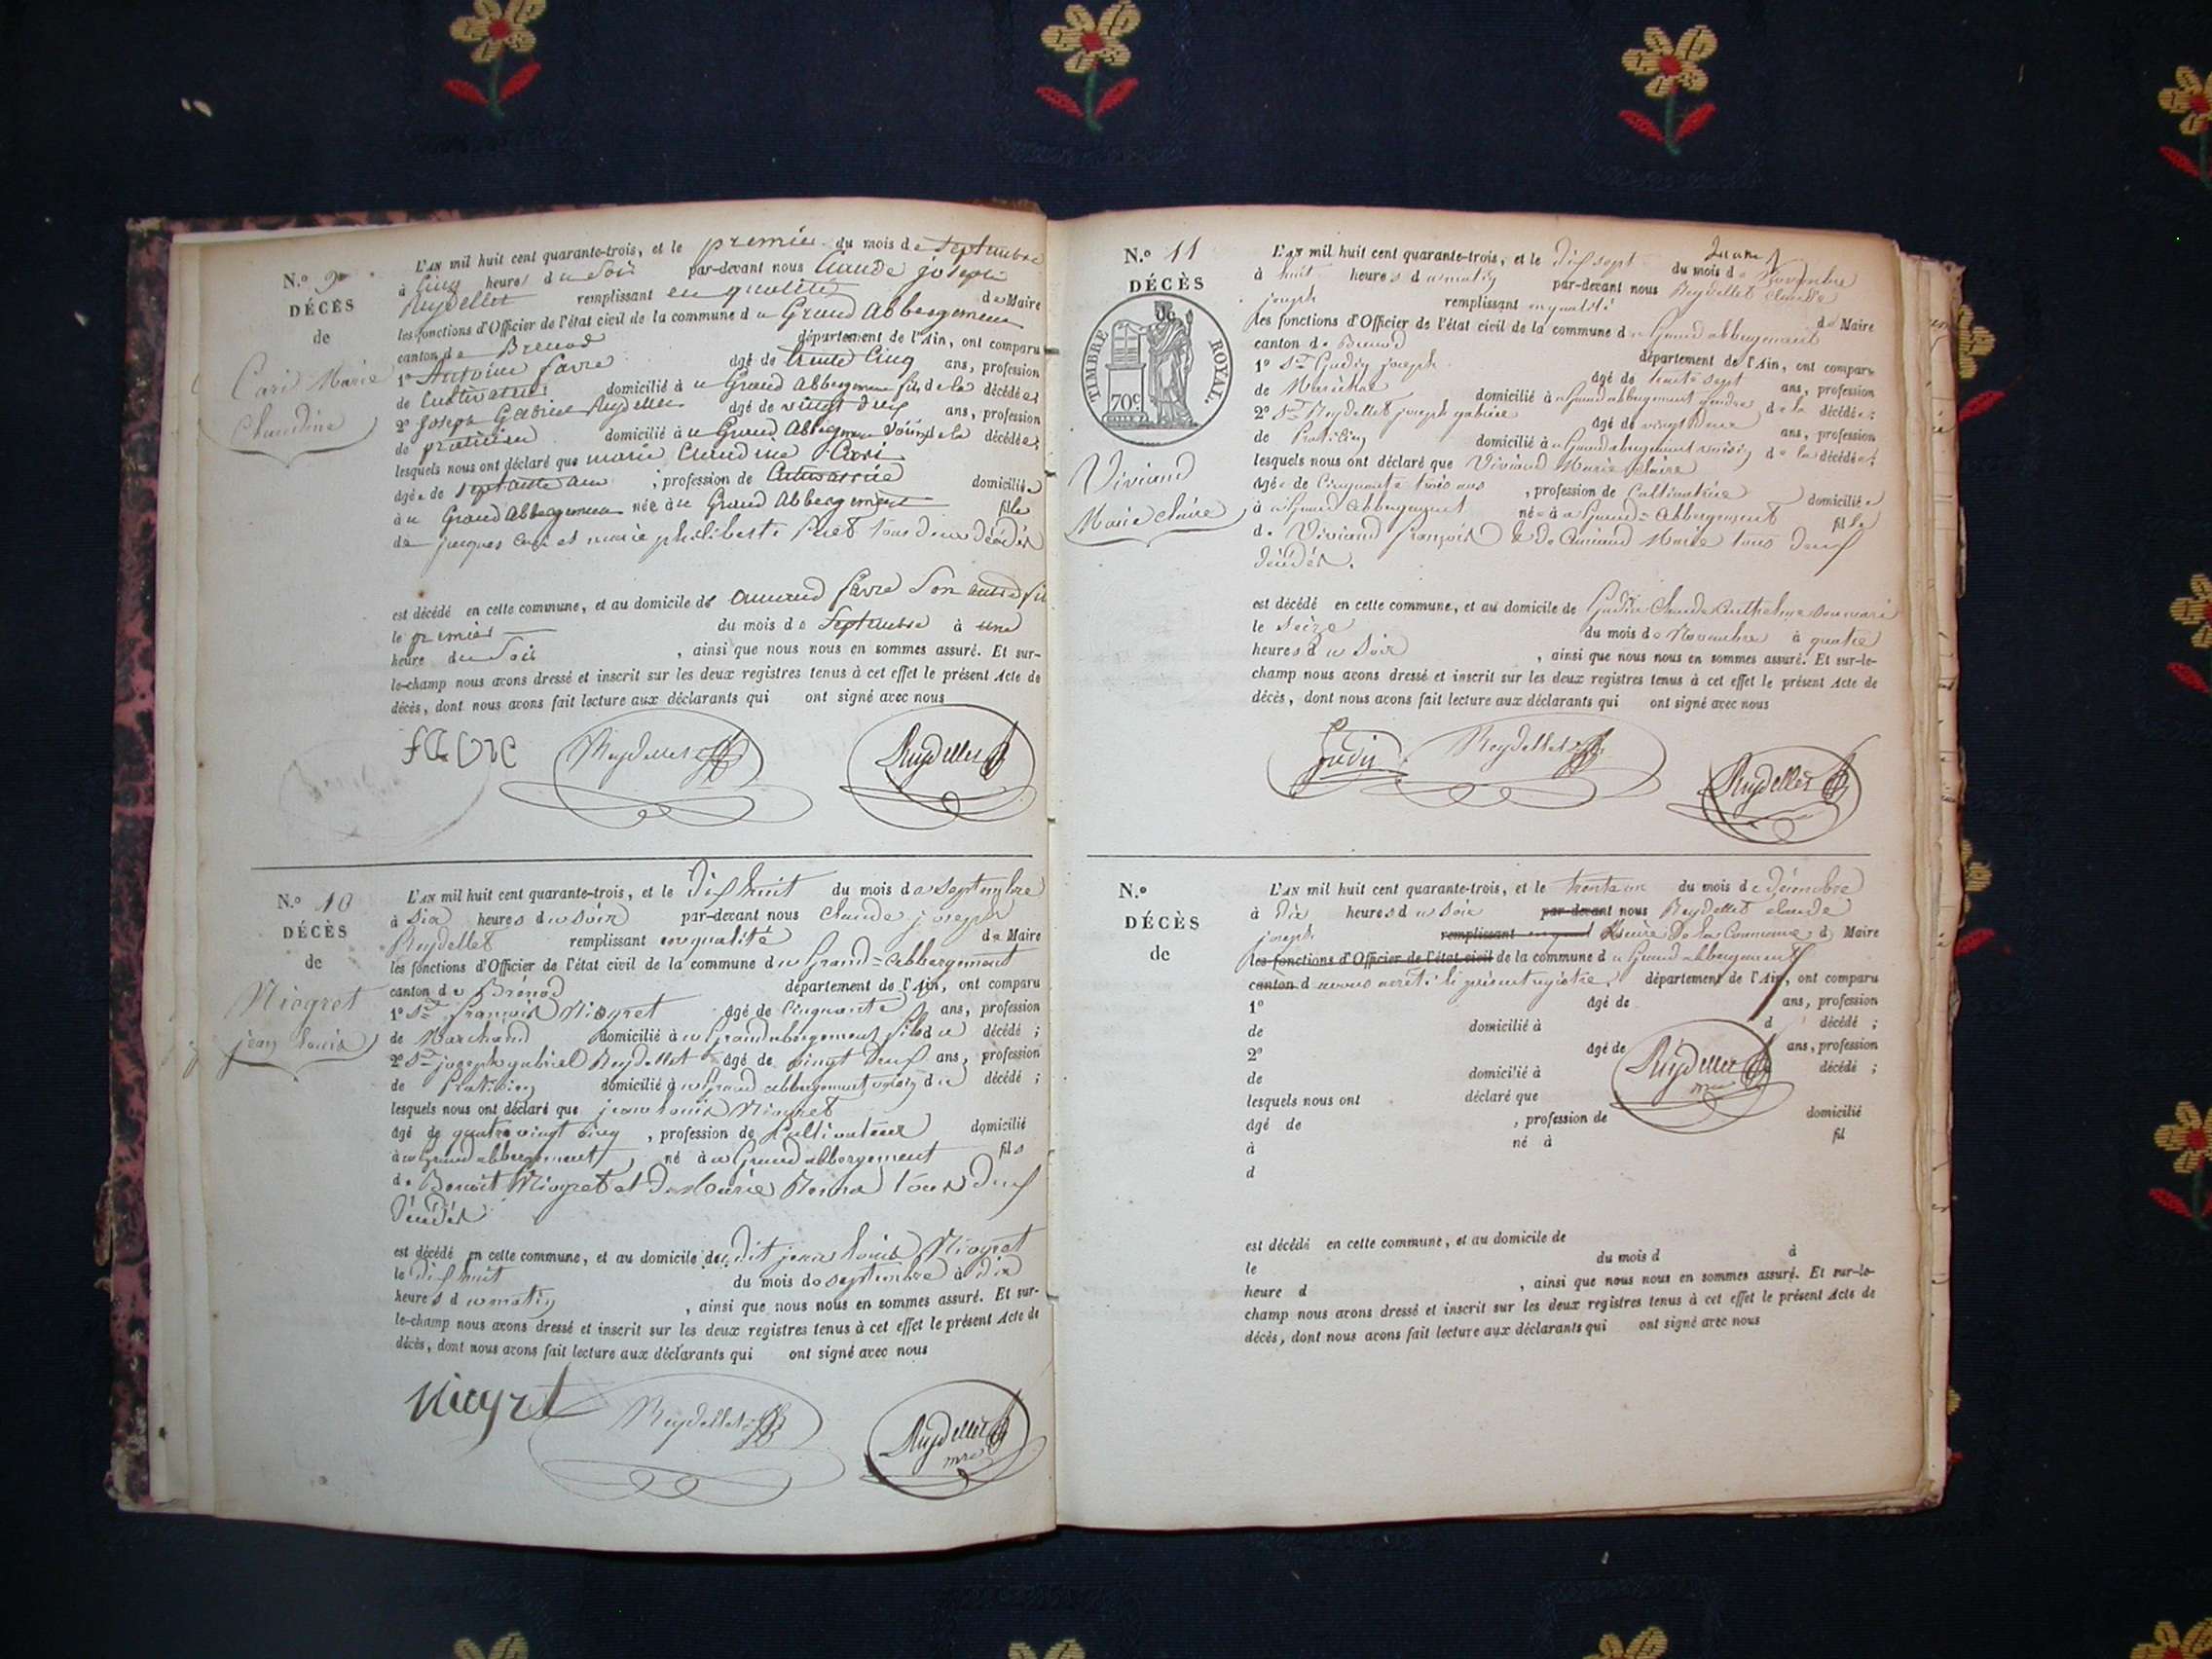 N.º 9
DÉCÈS
de
Cari Marie
Claudine
L'AN mil huit cent quarante-trois, et le premier du mois de septembre
à cinq heures du soir par-devant nous Claude joseph
Reydellet remplissant en qualité de Maire
les fonctions d'Officier de l'état civil de la commune du Grand Abbergement
canton de Brenod département de l'Ain, ont comparu
1º Antoine favre âgé de trente cinq ans, profession
de Cultivateur domicilié à u Grand Abbergement fils de la décédée;
2º Joseph Gabriel Reydellet âgé de vingt deux ans, profession
de praticien domicilié à u Grand Abbergement voisin de la décédée;
lesquels nous ont déclaré que marie Claudine Cari
âgée de septante ans, profession de Cultivatrice domiciliée
à u Grand Abbergement née à u Grand Abbergement fille
de jacques Cari et marie philiberte tous deux décédés
est décédé en cette commune, et au domicile de favre son autre fils
le premier du mois de Septembre à une
heure du Soir, ainsi que nous nous en sommes assuré. Et sur-
le-champ nous avons dressé et inscrit sur les deux registres tenus à cet effet le présent Acte de
décès, dont nous avons fait lecture aux déclarants qui ont signé avec nous
FAVRE Reydellet Reydellet
N.º 10
DÉCÈS
de
Niogret
jean Louis
L'AN mil huit cent quarante-trois, et le dix huit du mois de septembre
à six heures du soir par-devant nous Claude joseph
Reydellet remplissant en qualité de Maire
les fonctions d'Officier de l'état civil de la commune du Grand-Abbergement
canton de Brénod département de l'Ain, ont comparu
1º Sr. françois Niogret âgé de Cinquante ans, profession
de Marchand domicilié à u Grand abbergement fils du décédé;
2º Sr. joseph gabriel Reydellet âgé de vingt deux ans, profession
de Praticien domicilié à u Grand abbergement voisin du décédé;
lesquels nous ont déclaré que jean Louis Niogret
âgé de quatre vingt cinq, profession de Cultivateur domicilié
à u Grand abbergement, né à u Grand abbergement fils
de Benoit Niogret et de Marie tous deux
décédés
est décédé en cette commune, et au domicile du dit jean Louis Niogret
le dix huit du mois de septembre à dix
heures du matin, ainsi que nous nous en sommes assuré. Et sur-
le-champ nous avons dressé et inscrit sur les deux registres tenus à cet effet le présent Acte de
décès, dont nous avons fait lecture aux déclarants qui ont signé avec nous
Niogret Reydellet Reydellet
mre
N.º 11
DÉCÈS
TIMBRE ROYAL.
70c
Viviand
Marie claire
L'AN mil huit cent quarante-trois, et le dix sept du mois de Novembre
à huit heures du matin par-devant nous Reydellet Claude
joseph remplissant en qualité de Maire
les fonctions d'Officier de l'état civil de la commune du Grand abbergement
canton de Brenod département de l'Ain, ont comparu
1º Sr. Gudin joseph âgé de trente sept ans, profession
de Maréchal domicilié à u Grand abbergement gendre de la décédée;
2º Sr. Reydellet joseph gabriel âgé de vingt deux ans, profession
de Praticien domicilié à u Grand abbergement voisin de la décédée;
lesquels nous ont déclaré que Viviand Marie Claire
âgée de Cinquante trois ans, profession de Cultivatrice domiciliée
à u Grand Abbergement née à u Grand-Abbergement fille
de Viviand françois & de Marie tous deux
décédés.
est décédé en cette commune, et au domicile de Gudin Claude Anthelme son mari
le Seize du mois de Novembre à quatre
heures du soir, ainsi que nous nous en sommes assuré. Et sur-le-
champ nous avons dressé et inscrit sur les deux registres tenus à cet effet le présent Acte de
décès, dont nous avons fait lecture aux déclarants qui ont signé avec nous
Gudin Reydellet Reydellet
N.º
DÉCÈS
de
L'AN mil huit cent quarante-trois, et le trente un du mois de décembre
à dix heures du soir par-devant nous Reydellet claude
joseph remplissant en qual Maire De la Commune d Maire
les fonctions d'Officier de l'état civil de la commune du Grand abbergement
canton d avons arrêté le présent registre. département de l'Ain, ont comparu
1º âgé de ans, profession
de domicilié à d décédé;
2º âgé de ans, profession
de domicilié à décédé;
lesquels nous ont déclaré que
âgé de, profession de domicilié
à né à fil
d
Reydellet
mre
est décédé en cette commune, et au domicile de
le du mois d à
heure d, ainsi que nous nous en sommes assuré. Et sur-le-
champ nous avons dressé et inscrit sur les deux registres tenus à cet effet le présent Acte de
décès, dont nous avons fait lecture aux déclarants qui ont signé avec nous